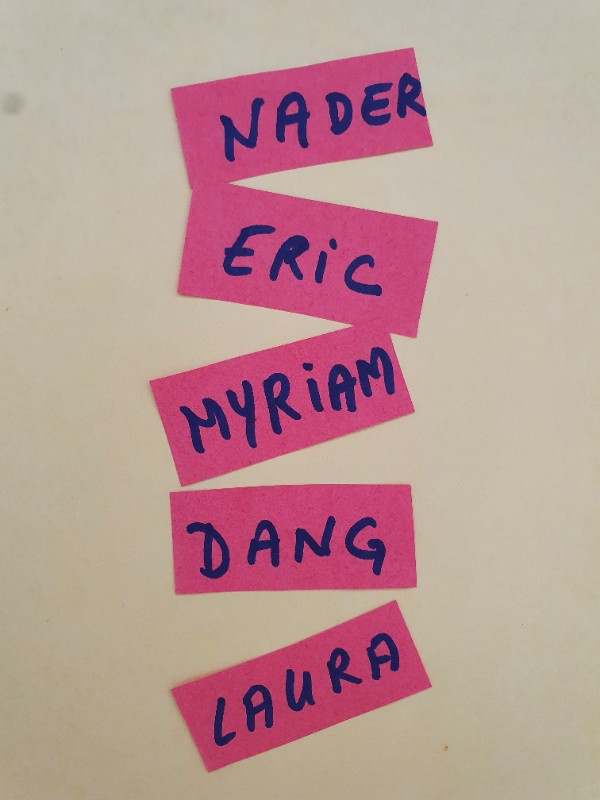 NADER
ERiC
MYRiAM
DANG
LAURA